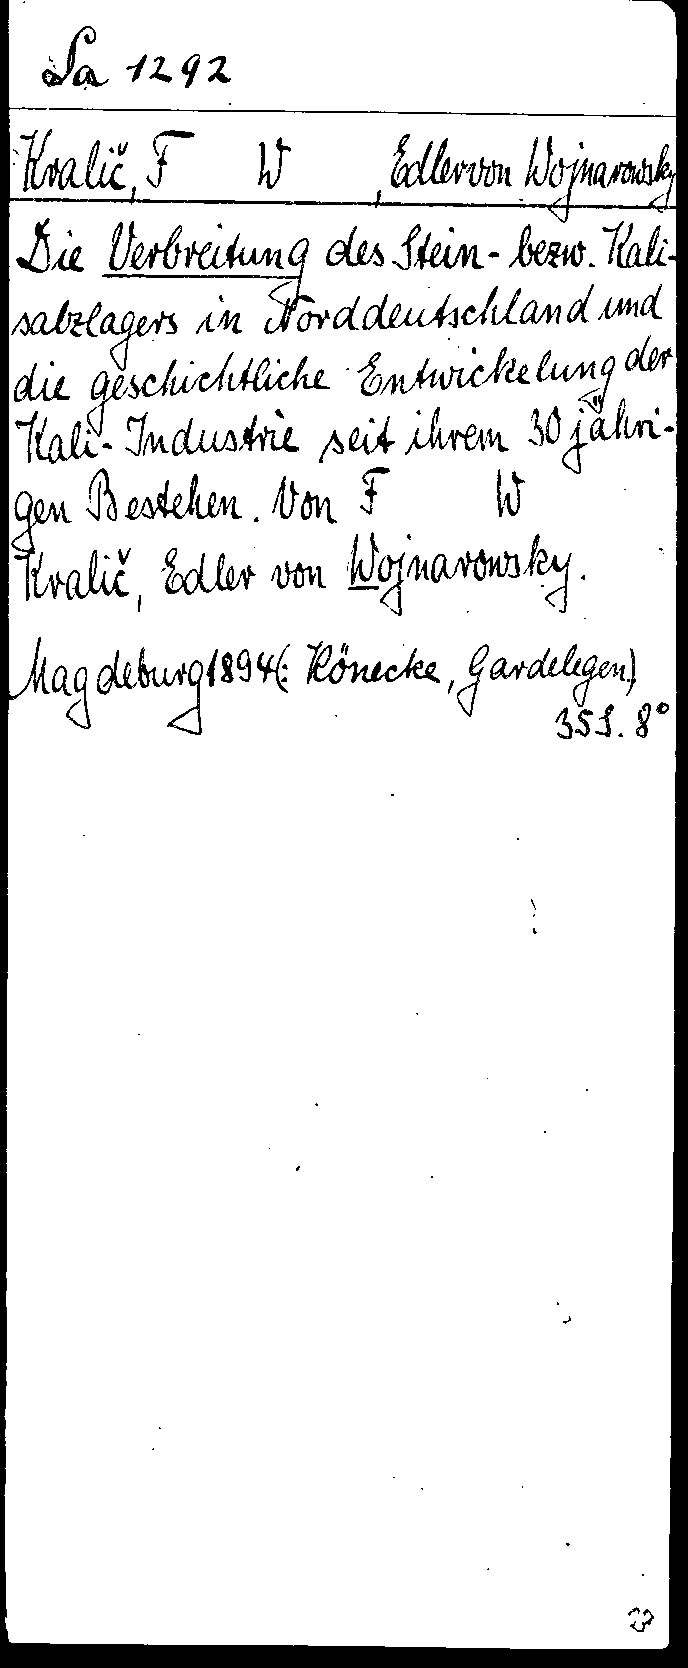 Sa 1292
Kralič, F W , Edler von Wojnarowsky
Die Verbreitung des Stein- bezw. Kali-
salzlagers in Norddeutschland und
die geschichtliche Entwickelung der
Kali-Industrie seit ihrem 30 jähri-
gen Bestehen. Von F W
Kralič, Edler von Wojnarowsky.
Magdeburg 1894 (: Könecke, Gardelegen)
35 S. 8°